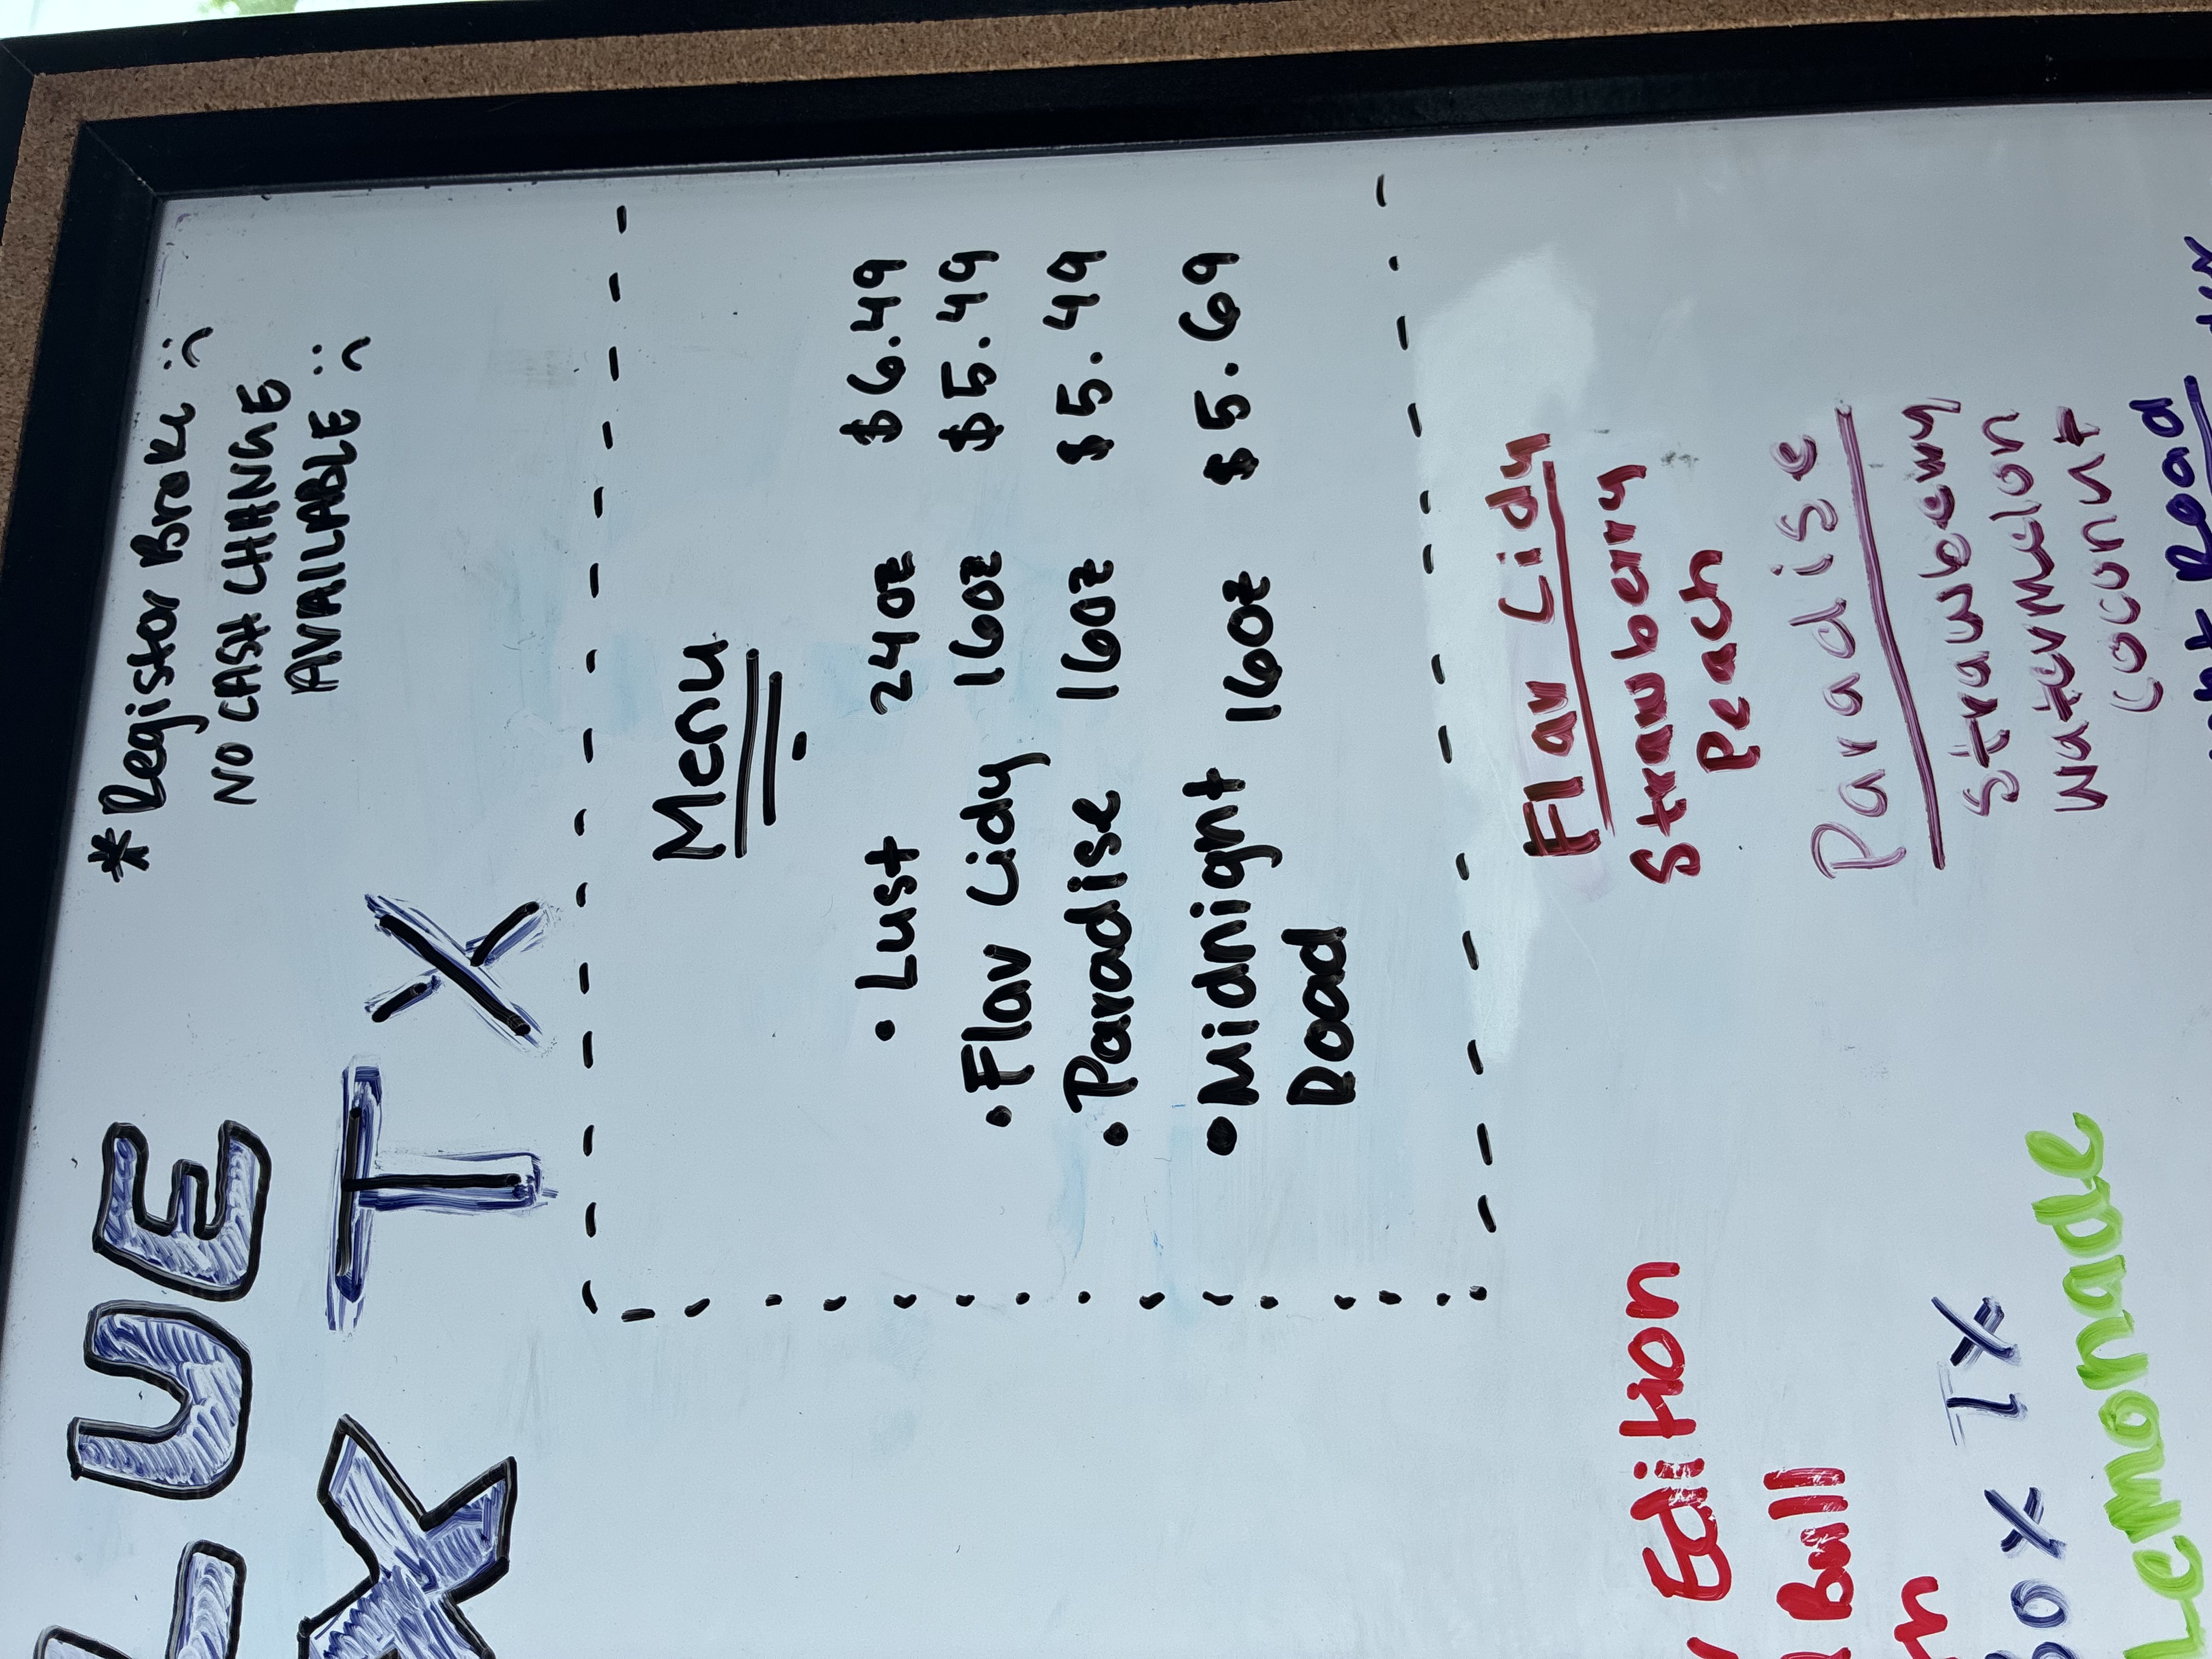 LUE
X TX
*Registor Broke :(
NO CASH CHANGE
AVAILABLE :(
Menu
• Lust 24oz $6.49
• Flav Cidy 16oz $5.49
• Paradise 16oz $5.49
• Midnight 16oz $5.69
Road
Edition
Bull
Box TX
Lemonade
Flav Cidy
Strawberry
Peach
Paradise
Strawberry
Watermelon
Coconut
Road